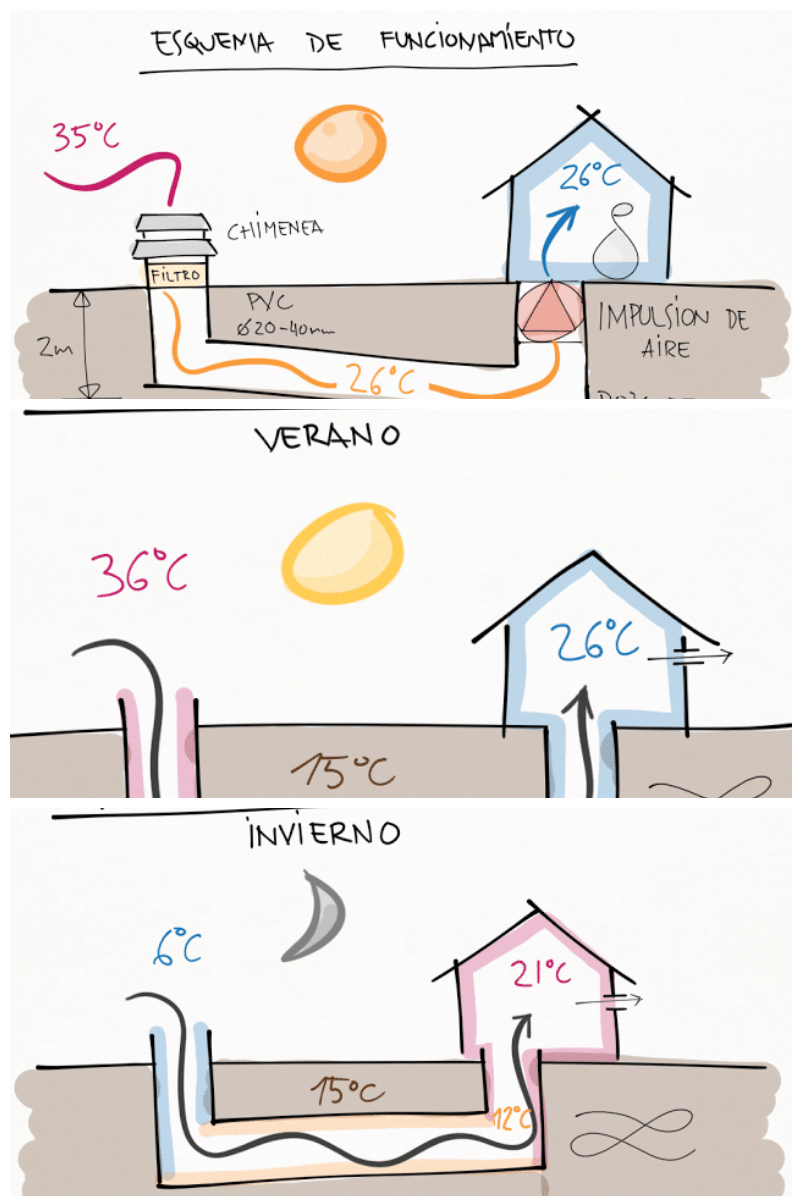 ESQUEMA DE FUNCIONAMIENTO
35°C
CHIMENEA
FILTRO
26°C
PVC
Ø20-40mm
2m
26°C
IMPULSION DE
AIRE
VERANO
36°C
26°C
15°C
INVIERNO
6°C
21°C
15°C
12°C